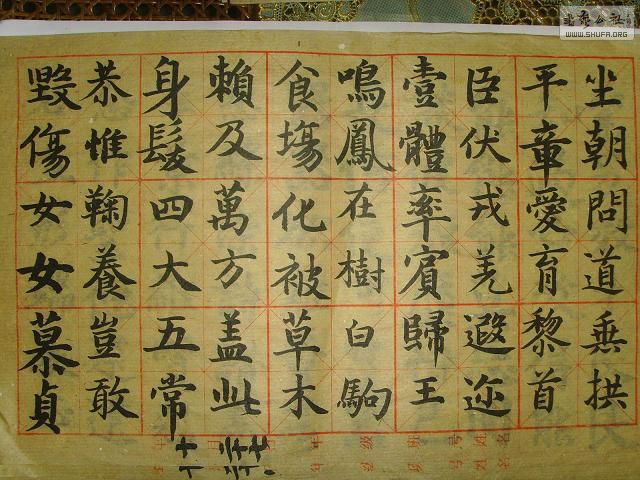 坐朝問道垂拱
平章愛育黎首
臣伏戎羌遐迩
壹體率賓歸王
鳴鳳在樹白駒
食塲化被草木
賴及萬方盖此
身髮四大五常
恭惟鞠養豈敢
毀傷女女慕貞
WWW.SHUFA.ORG